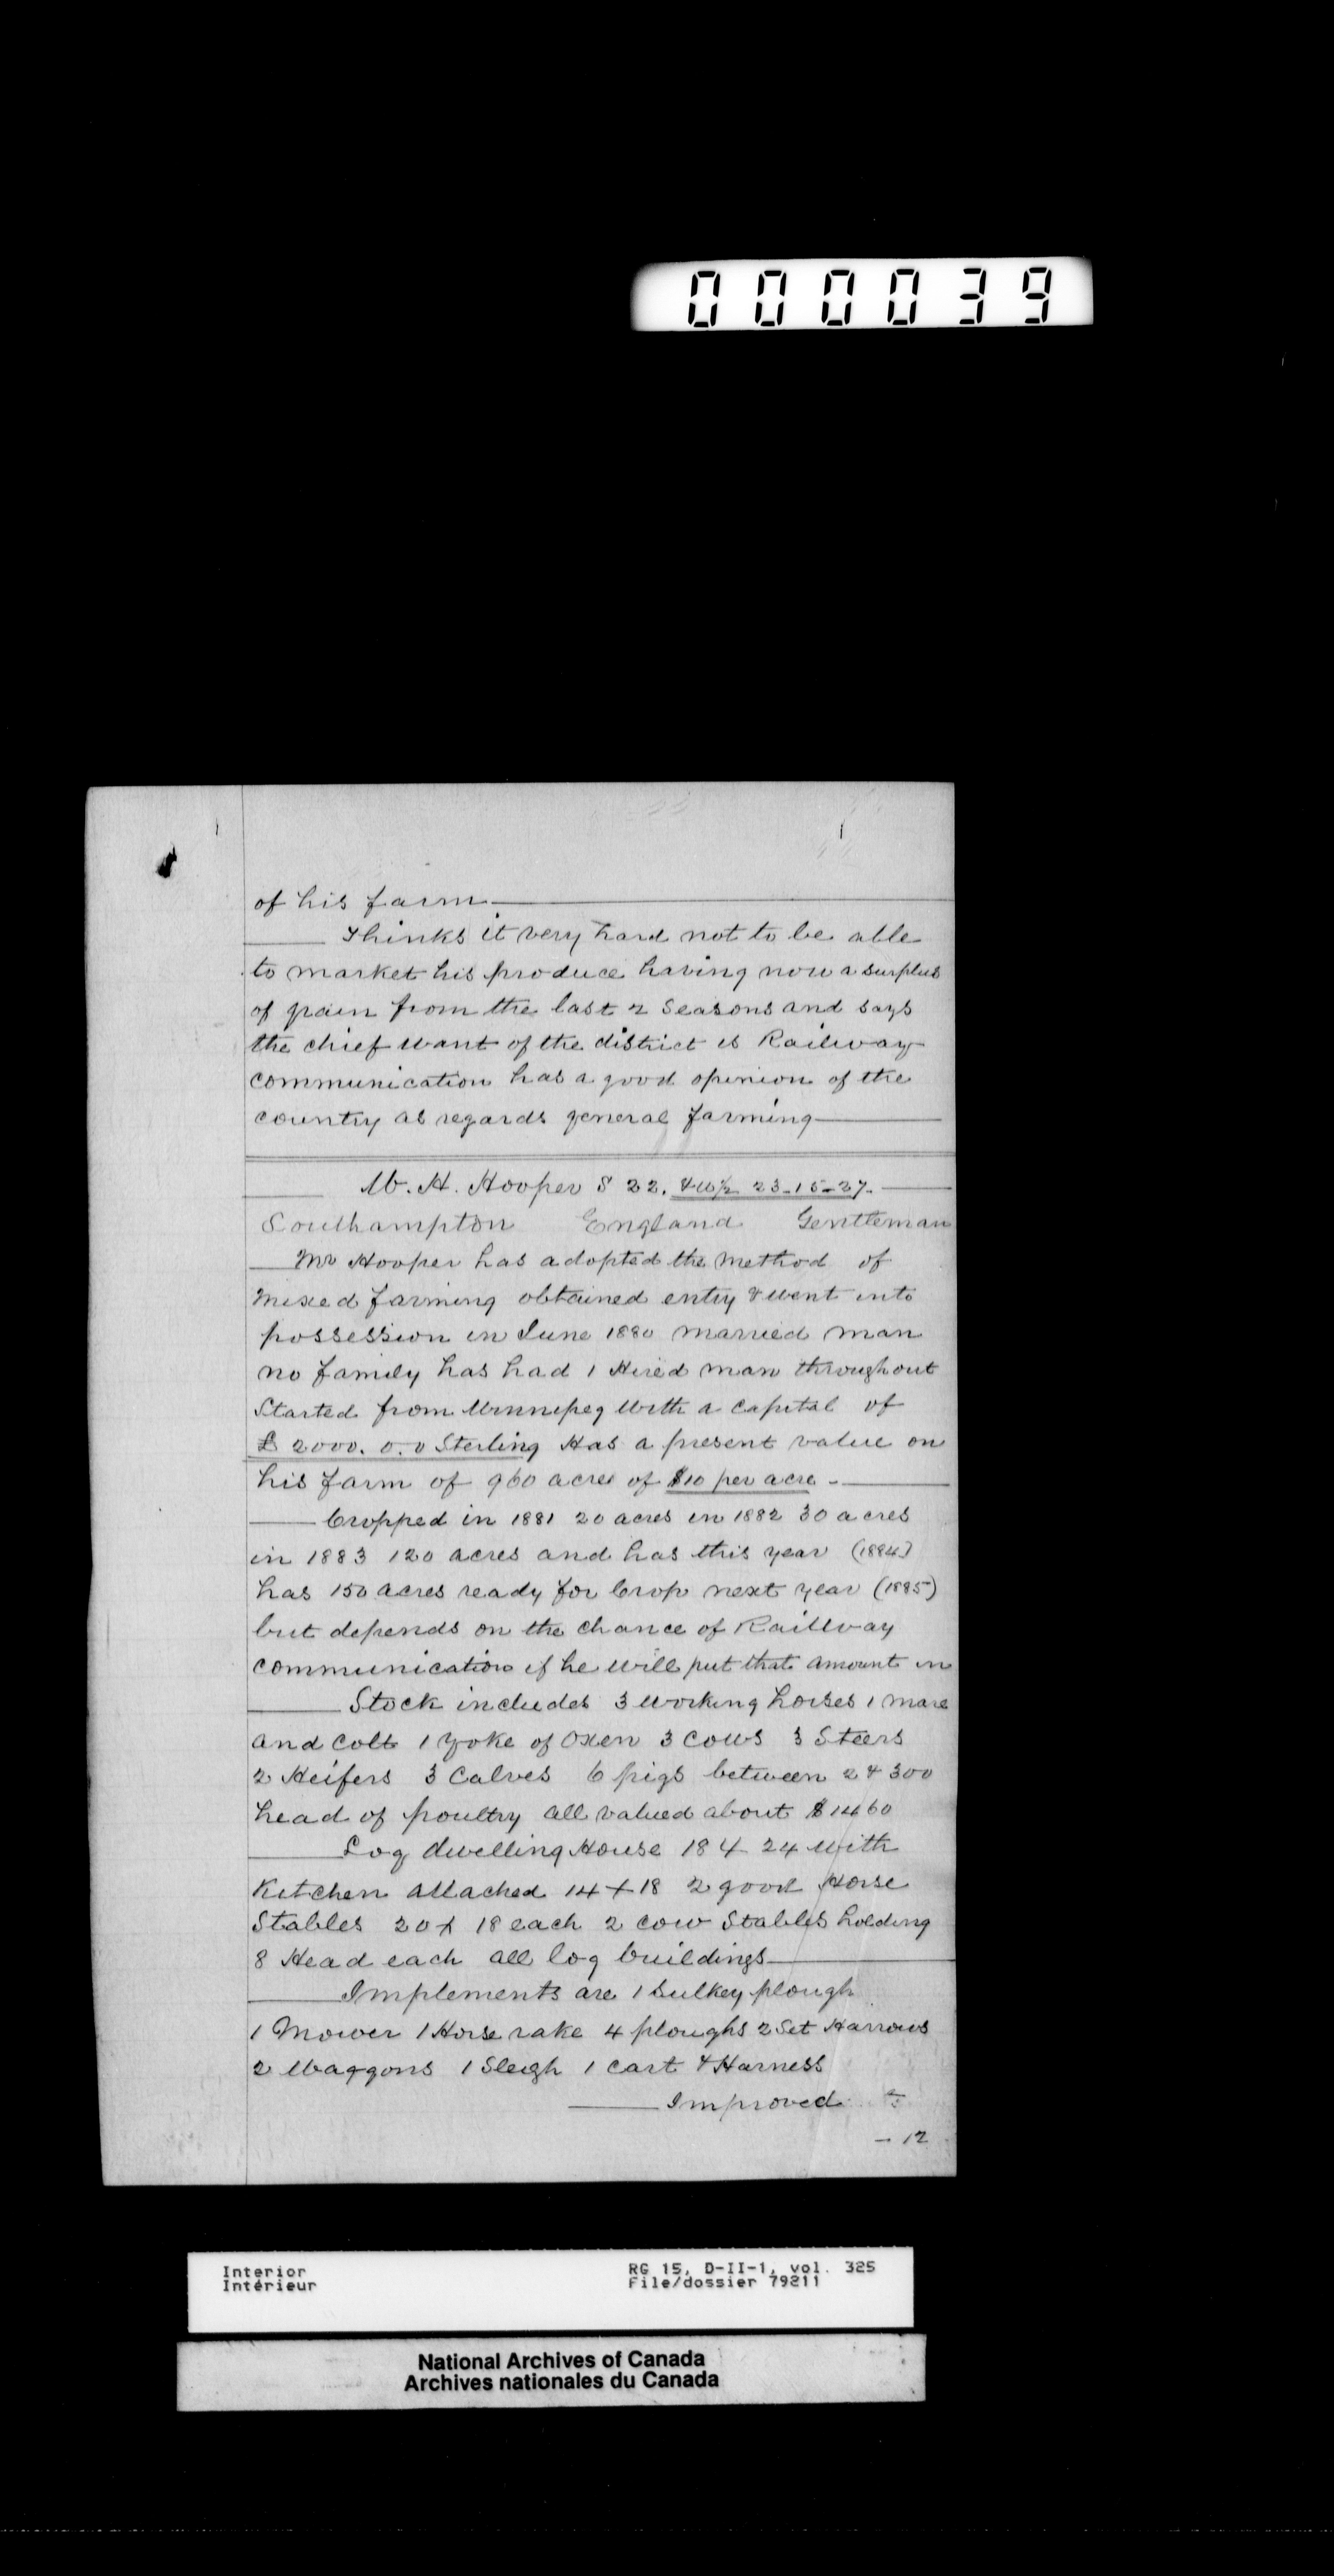 000039
of his farm.
Thinks it very hard not to be able
to market his produce having now a surplus
of grain from the last 2 Seasons and says
the chief want of the district is Railway
communication has a good opinion of the
country as regards general farming
W. H. Hooper S 22. & W ½ 23-15-27.
Southampton England Gentleman
Mr Hooper has adopted the method of
mixed farming obtained entry & went into
possession in June 1880 married man
no family has had 1 Hired man throughout
Started from Winnipeg with a capital of
£ 2000. 0. 0 Sterling Has a present value on
his farm of 960 acres of $10 per acre -
Cropped in 1881 20 acres in 1882 30 acres
in 1883 120 acres and has this year (1884)
has 150 acres ready for Crop next year (1885)
but depends on the chance of Railway
communication if he will put that amount in
Stock includes 3 working horses 1 mare
and colt 1 Yoke of Oxen 3 Cows 3 Steers
2 Heifers 3 Calves 6 pigs between 2 & 300
head of poultry all valued about $1460
Log dwelling House 18 X 24 with
Kitchen attached 14 X 18 2 good Horse
Stables 20 X 18 each 2 cow Stables holding
8 Head each all log buildings
Implements are 1 Sulkey plough
1 Mower 1 Horse rake 4 ploughs 2 Set Harrows
2 Waggons 1 Sleigh 1 Cart & Harness
Improved
- 12
Interior
Intérieur
RG 15, D-II-1, vol. 325
File/dossier 79211
National Archives of Canada
Archives nationales du Canada